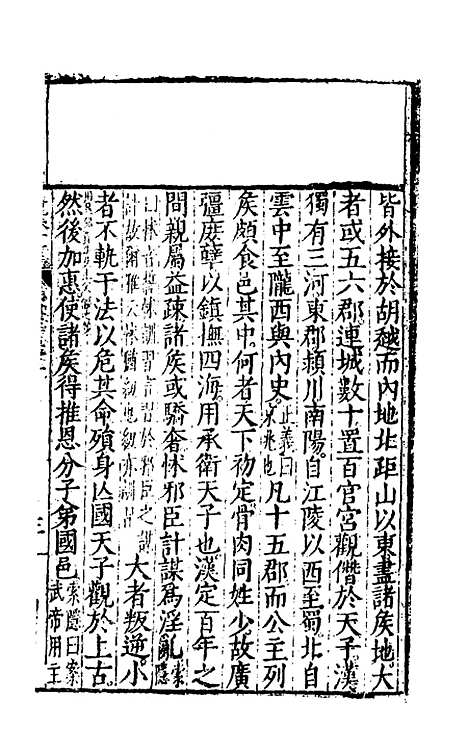 皆外接於胡越而內地北距山以東盡諸矦地大
者或五六郡連城數十置百官宮觀僭於天子漢
獨有三河東郡潁川南陽自江陵以西至蜀北自
雲中至隴西與內史正義曰京兆也凡十五郡而公主列
矦頗食邑其中何者天下初定骨肉同姓少故廣
彊庶孽以鎮撫四海用承衛天子也漢定百年之
間親屬益疎諸矦或驕奢忕邪臣計謀爲淫亂索隱
大者叛逆小
者不軌于法以危其命殞身亾國天子觀於上古
然後加惠使諸矦得推恩分子弟國邑索隱曰案武帝用主